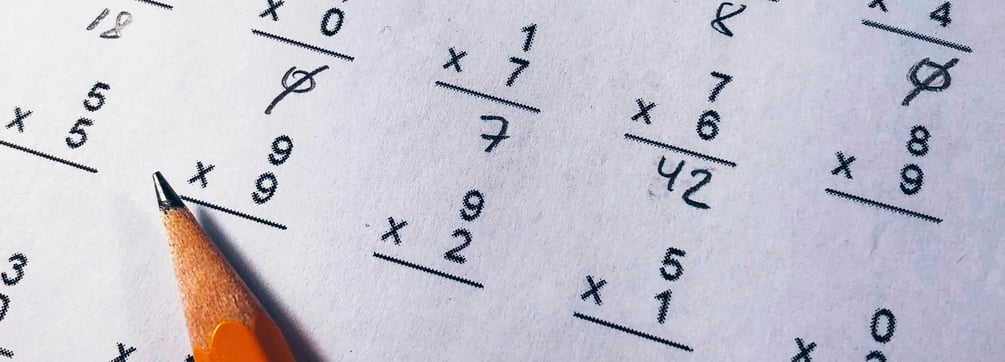 18
× 0
0
× 5
5
× 9
9
1
× 7
7
9
× 2
8
7
× 6
42
5
× 1
× 4
0
8
× 9
3
×
0
×